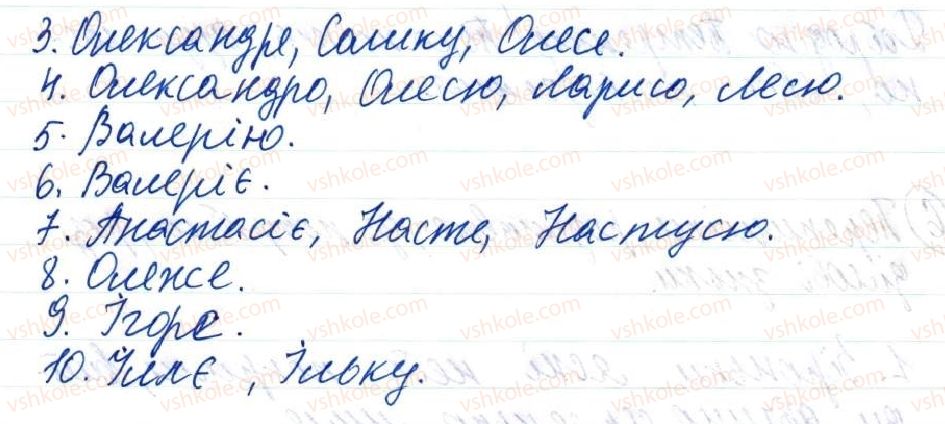 3. Олександре, Сашку, Олесе.
4. Олександро, Олесю, Ларисо, Лесю.
5. Валерію.
6. Валеріє.
7. Анастасіє, Насте, Настусю.
8. Олеже.
9. Ігоре.
10. Іллє, Ільку.